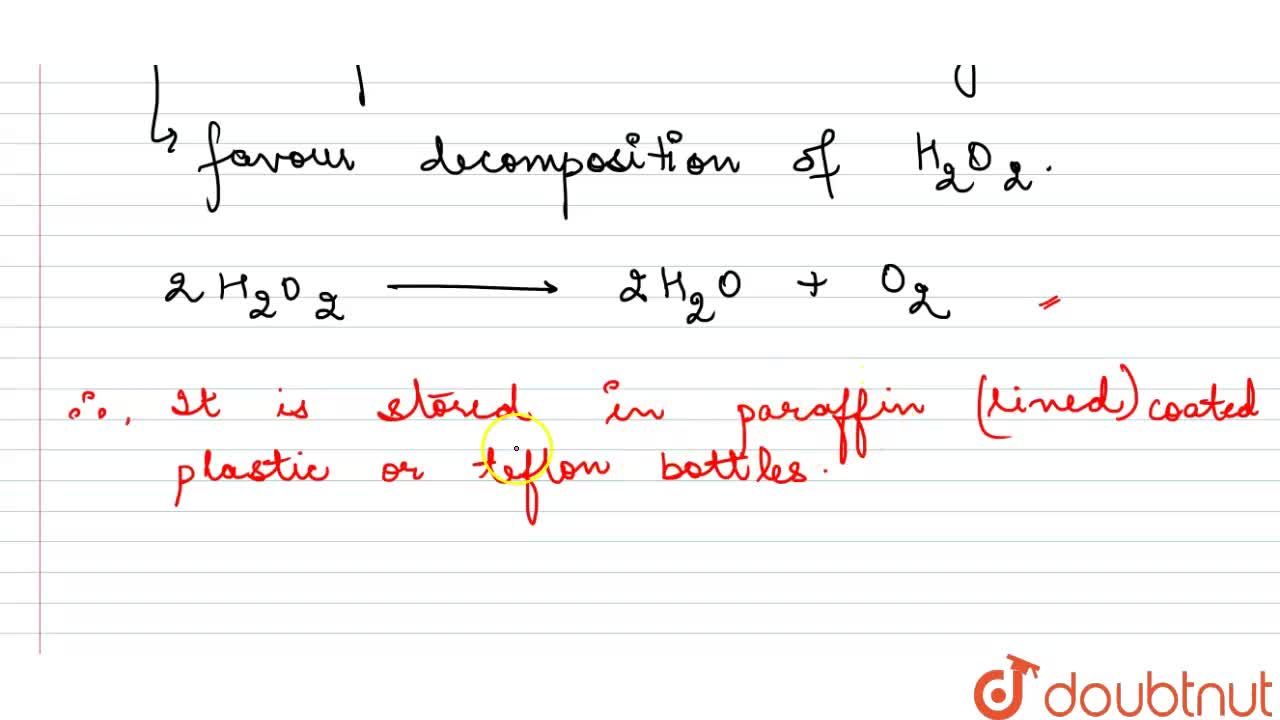 favour decomposition of H₂O₂.
2H₂O₂ ⟶ 2H₂O + O₂
∴, It is stored in paraffin (lined) coated
plastic or teflon bottles.
doubtnut